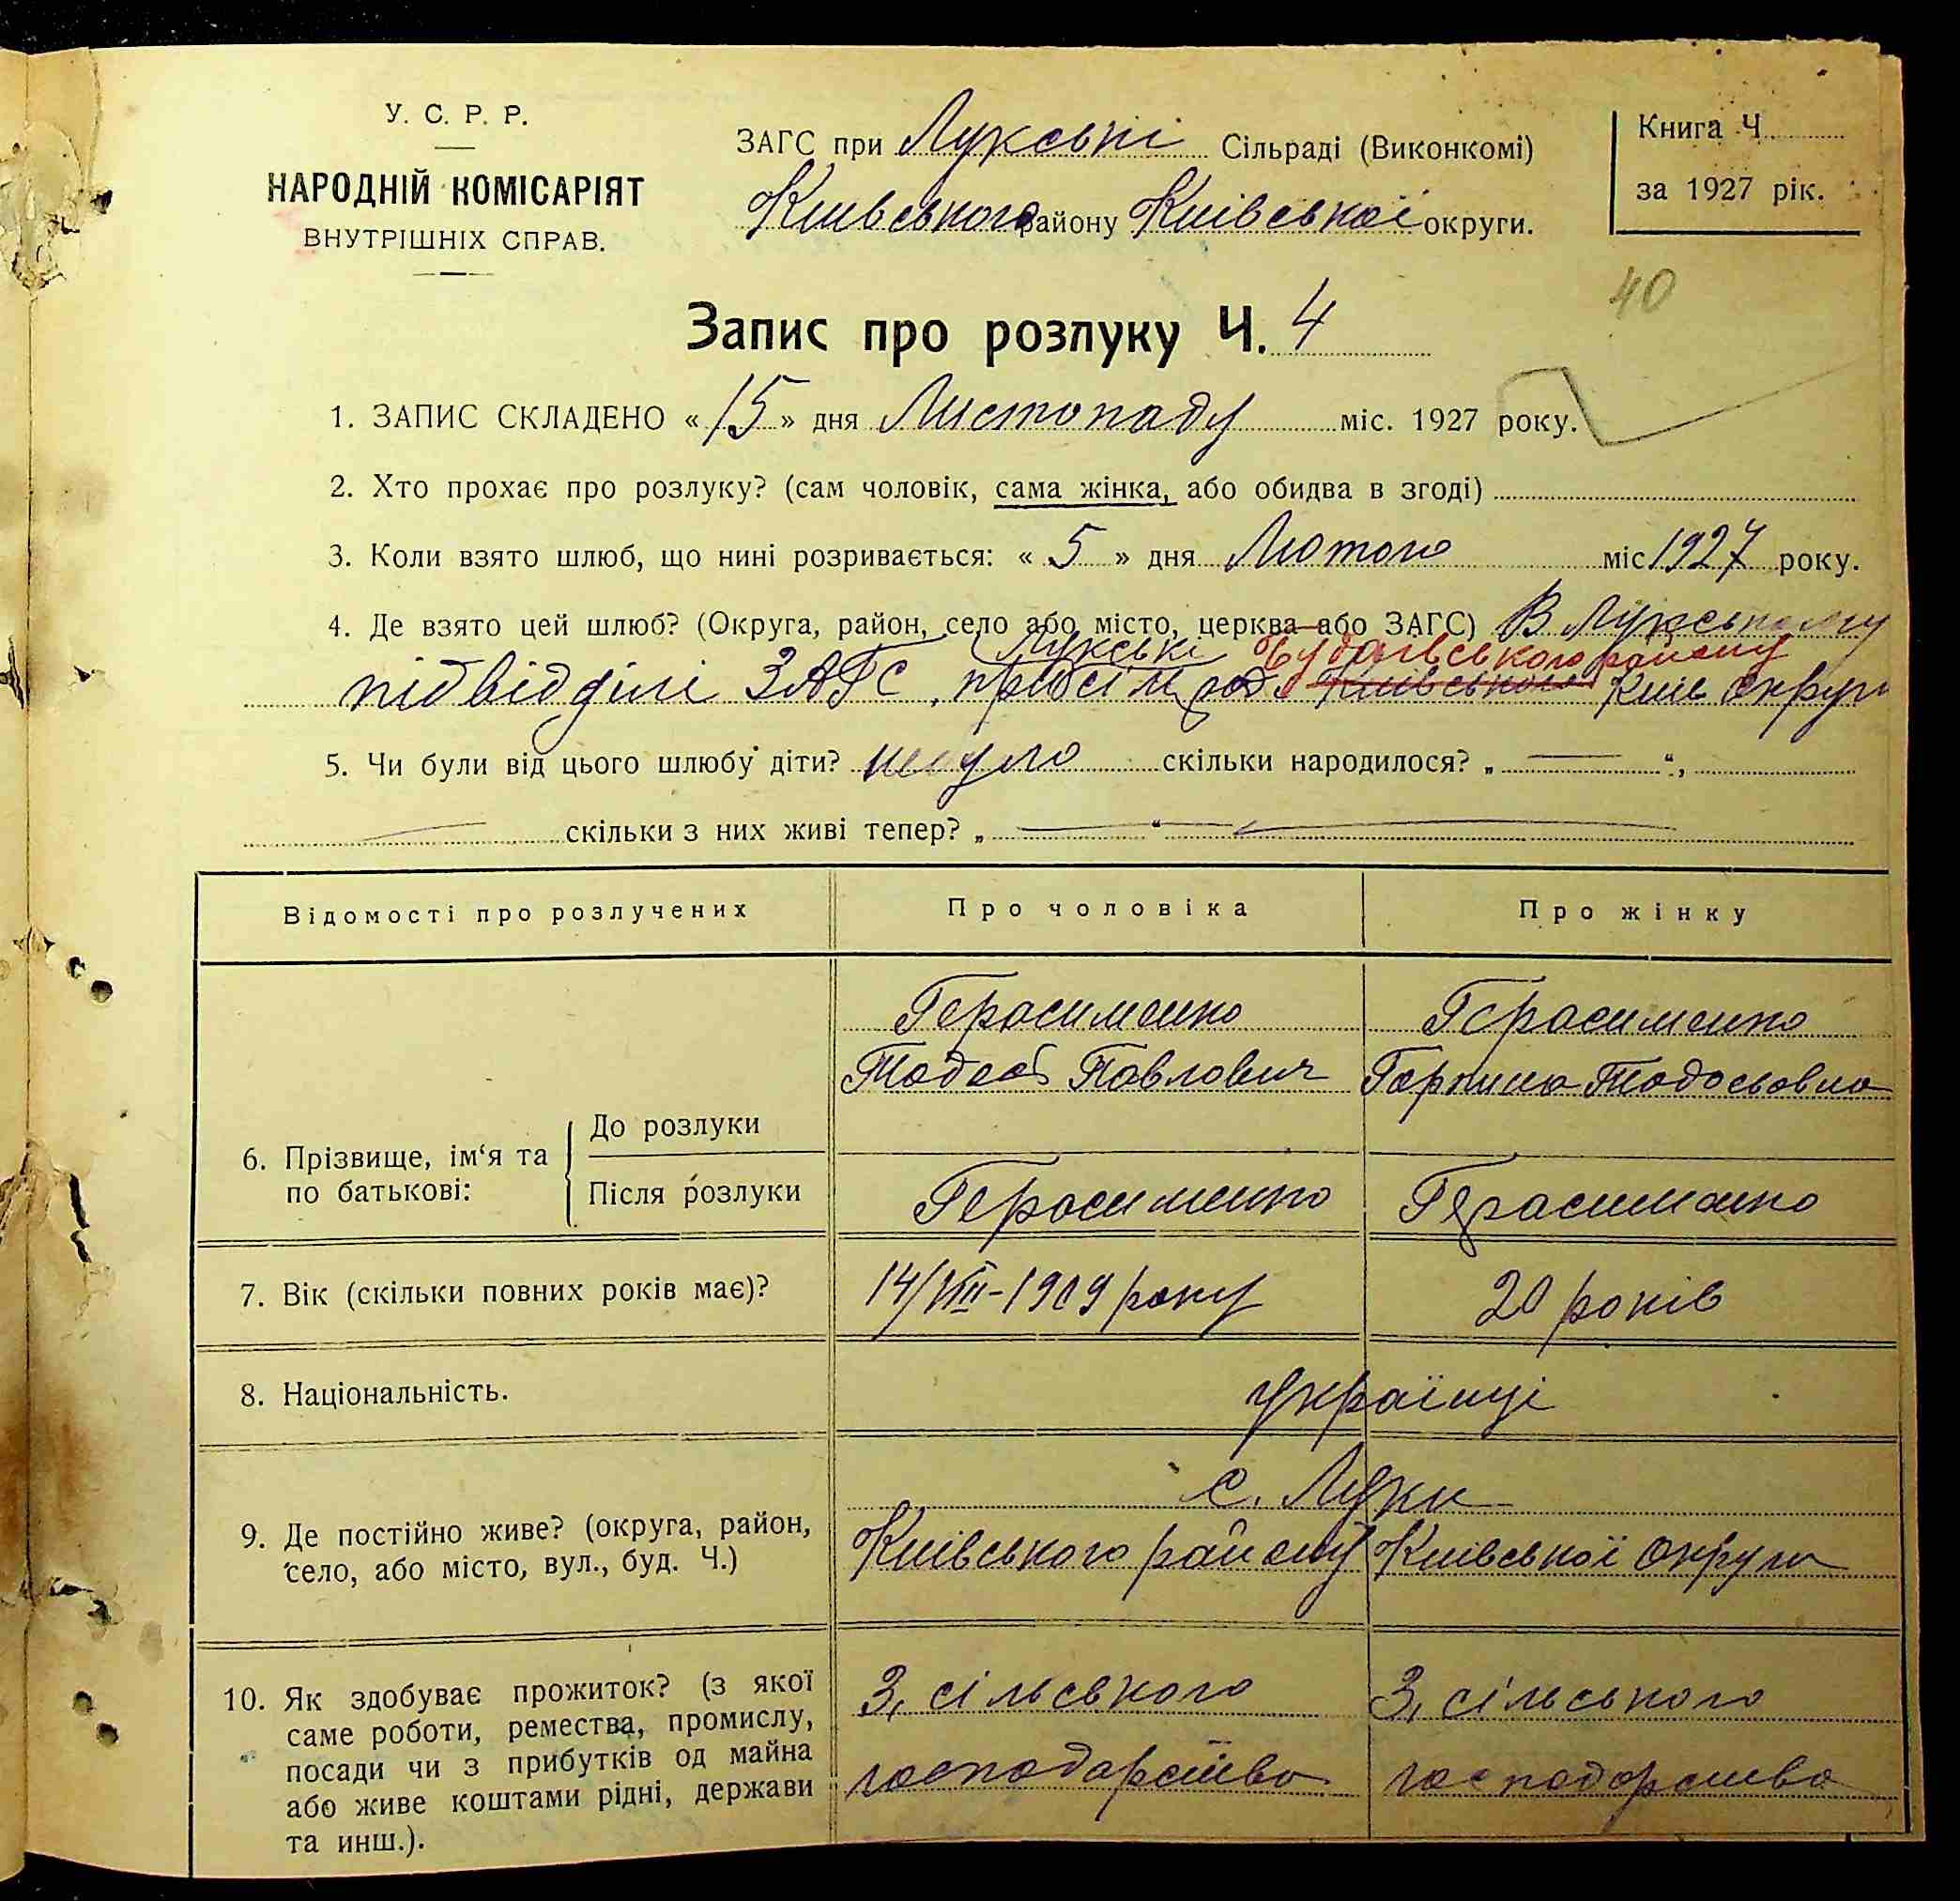 У. С. Р. Р.
НАРОДНІЙ КОМІСАРІЯТ
ВНУТРІШНІХ СПРАВ.
ЗАГС при Лукській Сільраді (Виконкомі)
Київського району Київської округи.
Книга Ч.
за 1927 рік.
40
Запис про розлуку Ч. 4
1. ЗАПИС СКЛАДЕНО «15» дня Листопаду міс. 1927 року.
2. Хто прохає про розлуку? (сам чоловік, сама жінка, або обидва в згоді)
3. Коли взято шлюб, що нині розривається: « 5 » дня Лютого міс 1927 року.
4. Де взято цей шлюб? (Округа, район, село або місто, церква або ЗАГС) В Лукському
Лукські Будаївського району
підвідділі ЗАГС. при сіль раді Київського Київ округи
5. Чи були від цього шлюбу діти? небуло скільки народилося? „ — “,
скільки з них живі тепер? „ — “
Відомості про розлучених
Про чоловіка
Про жінку
6. Прізвище, ім‘я та по батькові:
До розлуки
Після розлуки
Герасименко
Тодос Павлович
Герасименко
Герасименко
Горпина Тодосьовна
Герасименко
7. Вік (скільки повних років має)?
14/VIII-1909 року
20 років
8. Національність.
українці
9. Де постійно живе? (округа, район,
село, або місто, вул., буд. Ч.)
с. Луки
Київського району Київської округи
10. Як здобуває прожиток? (з якої
саме роботи, ремества, промислу,
посади чи з прибутків од майна
або живе коштами рідні, держави
та инш.).
З, сільського
господарства
З, сільського
господарства